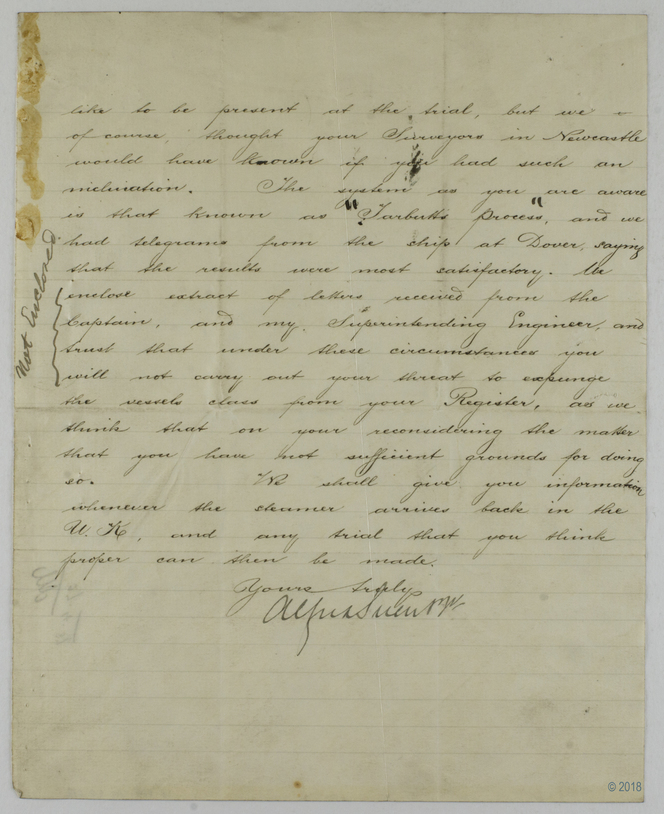 like to be present at the trial, but we -
of course, thought your Surveyors in Newcastle
would have known if you had such an
inclination. The system as you are aware
is that known as "Tarbutts Process", and we
had telegrams from the ship at Dover, saying
that the results were most satisfactory. We
enclose extract of letters received from the
Captain, and my Superintending Engineer, and
trust that under these circumstances you
will not carry out your threat to expunge
the vessels class from your Register, as we
think that on your reconsidering the matter
that you have not sufficient grounds for doing
so. We shall give you information
whenever the steamer arrives back in the
U.K, and any trial that you think
proper can then be made.
Yours truly
Not Enclosed.
© 2018